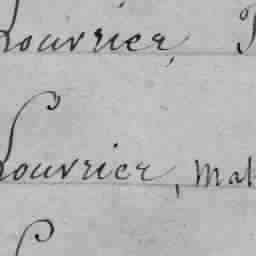 Louvrier,
Louvrier, Mat